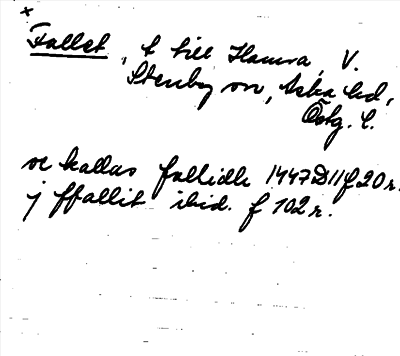 x
Fallet, t till Hamra, V.
Stenby sn, Aska hd,
Östg. l.
se kallas fallidh 1447 D 11 f 20 r.
j ffallit ibid. f 102 r.